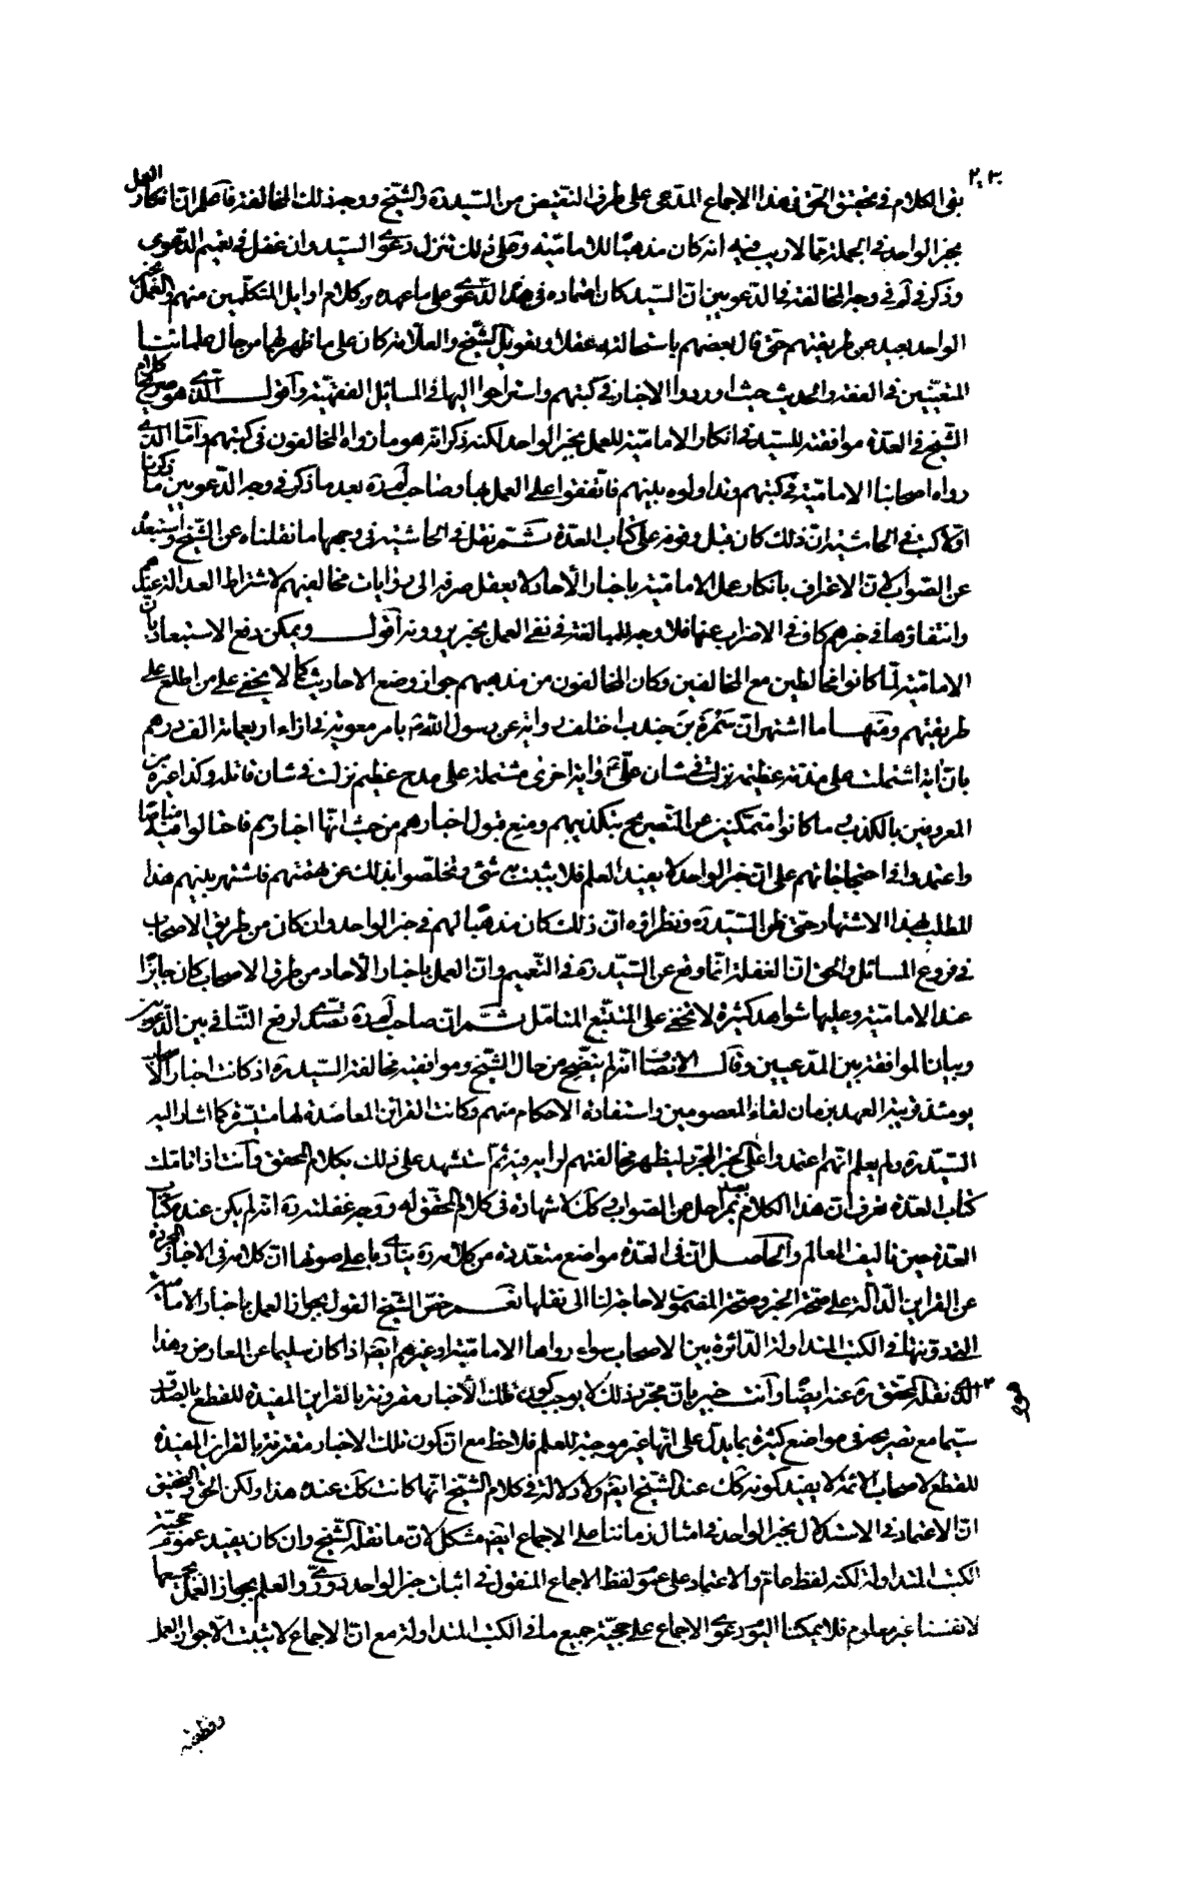 ٢٠٣
بقى الكلام فى تحقيق الحق فى هذا الاجماع المدعى على طرف النقيض من السيد ره والشيخ ووجه ذلك المخالفة فاعلم ان انكار العمل
بخبر الواحد فى الجملة مما لا ريب فيه انه كان مذهبا للامامية وعلى ذلك تنزل دعوى السيد وان غفل فى تعميم الدعوى
وذكر فى لم فى وجه المخالفة فى الدعويين ان السيد كان اعتماده فى هذا الدعوى على ما عهده من كلام اوايل المتكلمين منهم والعمل بخبر
الواحد بعيد عن طريقتهم حتى قال بعضهم باستحالته عقلا وتعويل الشيخ والعلامة كان على ما ظهر لهما من حال علمائنا
المعتنين فى الفقه والحديث حيث اوردوا الاخبار فى كتبهم واستراحوا اليها فى المسائل الفقهية واقول الذى هو صريح كلام
الشيخ فى العدة موافقته للسيد فى انكار الامامية للعمل بخبر الواحد لكنه ذكر انه هو ما رواه المخالفون فى كتبهم واما الذى
رواه اصحابنا الامامية فى كتبهم وتداولوه بينهم فاتفقوا على العمل بها وصاحب لم ره بعد ما ذكر فى وجه الدعويين ما ذكرنا
اولا كتب فى الحاشية ان ذلك كان قبل وقوفه على كتاب العدة ثم نقل فى الحاشية فى وجهها ما نقلناه عن الشيخ واستبعده
عن الصواب لان الاعتراف بانكار عمل الامامية باخبار الآحاد لا يعقل صرفه الى روايات مخالفيهم لاشتراط العدالة عندهم
وانتفاؤها فى خبرهم كاف فى الاضراب عنها فلا وجه للمبالغة فى نفى العمل بخبر يروونه اقول ويمكن دفع الاستبعاد بان
الامامية لما كانوا مخالطين مع المخالفين وكان المخالفون من مذهبهم جواز وضع الاحاديث كما لا يخفى على من اطلع على
طريقتهم ومنها ما اشتهر ان سمرة بن جندب اختلف رواية عن رسول الله ص بامر معوية فى ازاء اربعمائة الف درهم
بان آية اشتملت على مذمة عظيمة نزلت فى شان على ع وآية اخرى مشتملة على مدح عظيم نزلت فى شان قاتله وكذا غيره من
المعروفين بالكذب ما كانوا متمكنين عن التصريح بتكذيبهم ومنع قبول اخبارهم من حيث انها اخبارهم فاحتالوا فيه مناصا
واعتمدوا فى احتجاجاتهم على ان خبر الواحد لا يفيد العلم فلا يثبت به شئ وتخلصوا بذلك عن تهمتهم فاشتهر بينهم هذا
المطلب بهذا الاشتهار حتى ظن السيد ره ونظراؤه ان ذلك كان مذهبا لهم فى خبر الواحد وان كان من طريق الاصحاب
فى فروع المسائل والحق ان الغفلة انما وقع عن السيد ره فى التعميم وان العمل باخبار الآحاد من طرق الاصحاب كان جائزا
عند الامامية وعليها شواهد كثيرة لا تخفى على المتتبع المتامل ثم ان صاحب لم ره تصدى لرفع التنافى بين الدعويين
وبيان الموافقة بين المدعيين وقال الانصاف انه لم يتضح من حال الشيخ وموافقيه مخالفة السيد ره اذ كانت اخبار الاصحاب
يومئذ قريبة العهد بزمان لقاء المعصومين واستفادة الاحكام منهم وكانت القرائن المعاضدة لها متيسرة كما اشار اليه
السيد ره ولم يعلم انهم اعتمدوا على الخبر المجرد ليظهر مخالفتهم لرايه فيه ثم استشهد على ذلك بكلام المحقق وانت اذا تاملت
كتاب العدة تعرف ان هذا الكلام بعيد بمراحل عن الصواب وكك لا شهادة فى كلام المحقق له ووجه غفلته ره انه لم يكن عنده كتاب
العدة حين تاليف المعالم والحاصل ان فى العدة مواضع متعددة من كلامه ره ينادى باعلى صوتها ان كلامه فى الاخبار المجردة
عن القراين الدالة على صحة الخبر وصحة المضمون لا حاجة لنا الى نقلها نعم خص الشيخ القول بجواز العمل باخبار الامامية
التى دونتها فى الكتب المتداولة الدائرة بين الاصحاب سواء رواها الامامية او غيرهم ايضا اذا كان سليما عن المعارض وهذا
الذى نقله المحقق ره عنه ايضا وانت خبير بان مجرد ذلك لا يوجب كون تلك الاخبار مقرونة بالقراين المفيدة للقطع بالصدور
سيما مع تصريحه فى مواضع كثيرة بما يدل على انها غير موجبة للعلم فلاحظ مع ان كون تلك الاخبار مقترنة بالقراين المفيدة
للقطع لاصحاب الائمة لا يفيد كونه كك عند الشيخ ايضا ولا دلالة فى كلام الشيخ انها كانت كك عنده هذا ولكن الحق والتحقيق
ان الاعتماد فى الاستدلال بخبر الواحد فى امثال زماننا على الاجماع ايضا مشكل لان ما نقله الشيخ وان كان يفيد عموم حجية
الكتب المتداولة لكنه لفظ عام والاعتماد على عموم لفظ الاجماع المنقول فى اثبات خبر الواحد دورى والعلم بجواز العمل بجميعها
لانفسنا غير معلوم فلا يمكننا اليوم دعوى الاجماع على حجية جميع ما فى الكتب المتداولة مع ان الاجماع لا يثبت الا جواز العمل